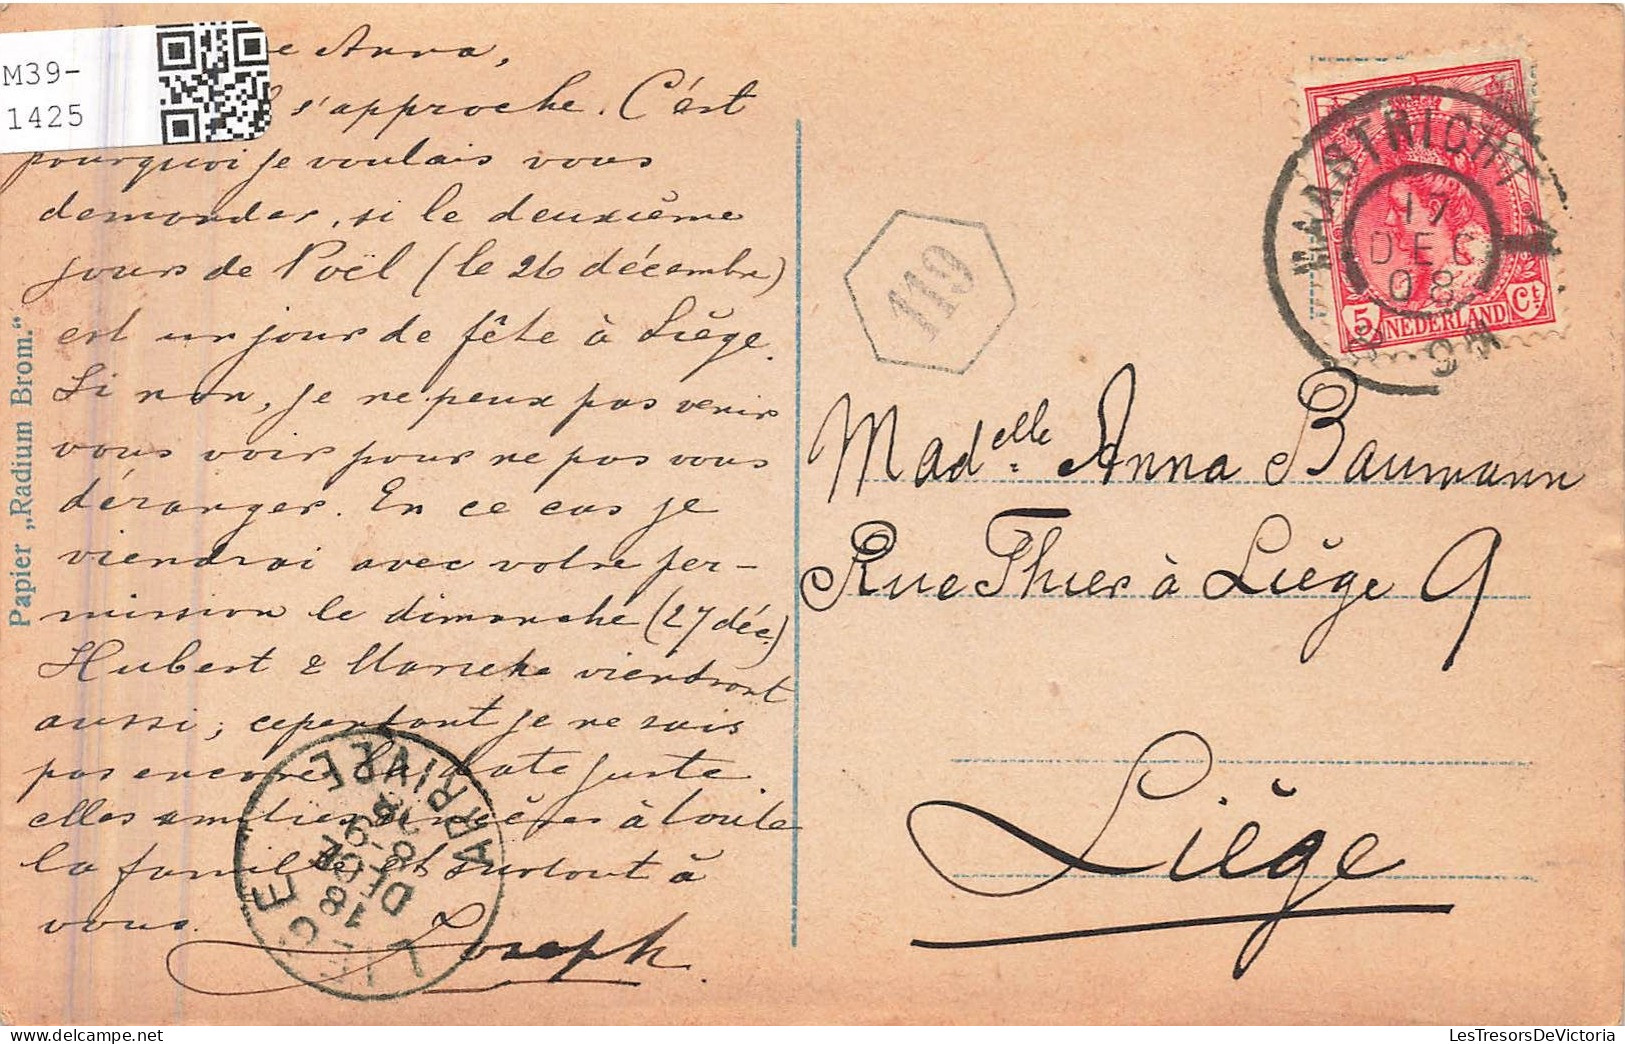 M39-
1425
e Anna,
s'approche. C'est
pourquoi je voulais vous
demander, si le deuxième
jours de Noël (le 26 décembre)
est un jour de fête à Liège.
Si non, je ne peux pas venir
vous voir pour ne pas vous
déranger. En ce cas je
viendrai avec votre per-
mission le dimanche (27 déc.)
Hubert & Marieke viendront
aussi; cependant je ne sais
pas encore la date juste
elles amitiés sincères à toute
la famille et surtout à
vous.
Joseph.
Papier „Radium Brom."
LIEGE ARRIVÉE
18
DEC
119
MAASTRICHT 1
17
DEC
08
5 NEDERLAND Ct
Madelle Anna Baumann
Rue Thier à Liège 9
Liège
LesTresorsDeVictoria.com